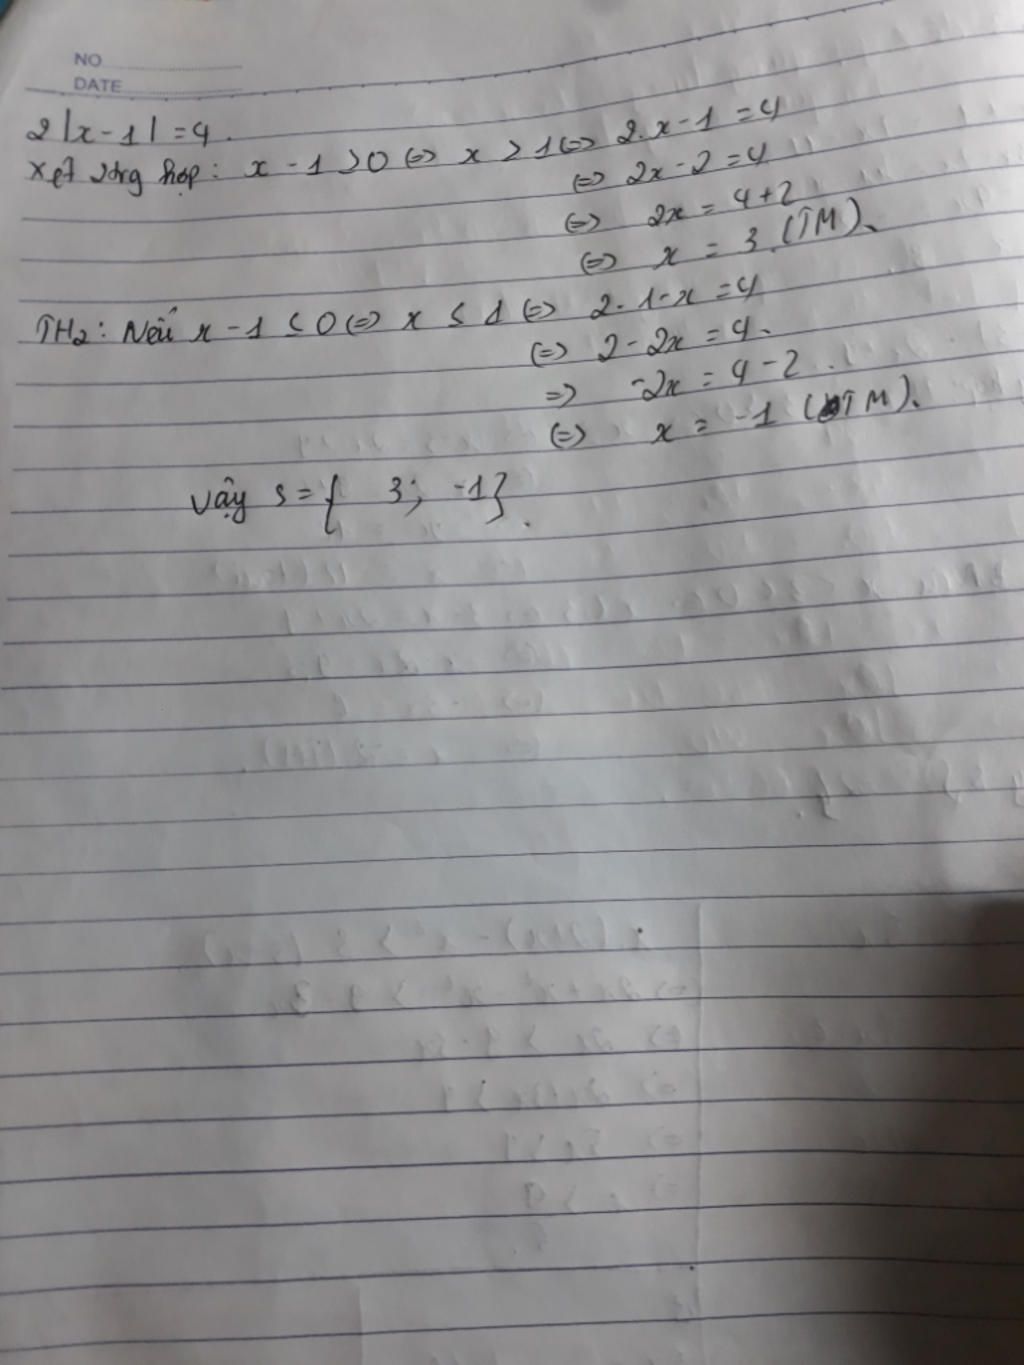 NO
DATE
2|x-1| = 4.
Xét trường hợp: x - 1 > 0 <=> x > 1 <=> 2.x-1 = 4
<=> 2x - 2 = 4
<=> 2x = 4+2
<=> x = 3 (TM).
TH2: Nếu x - 1 ≤ 0 <=> x ≤ 1 <=> 2.1-x = 4
<=> 2 - 2x = 4.
=> -2x = 4 - 2.
<=> x = -1 (TM).
Vậy S = { 3; -1}.